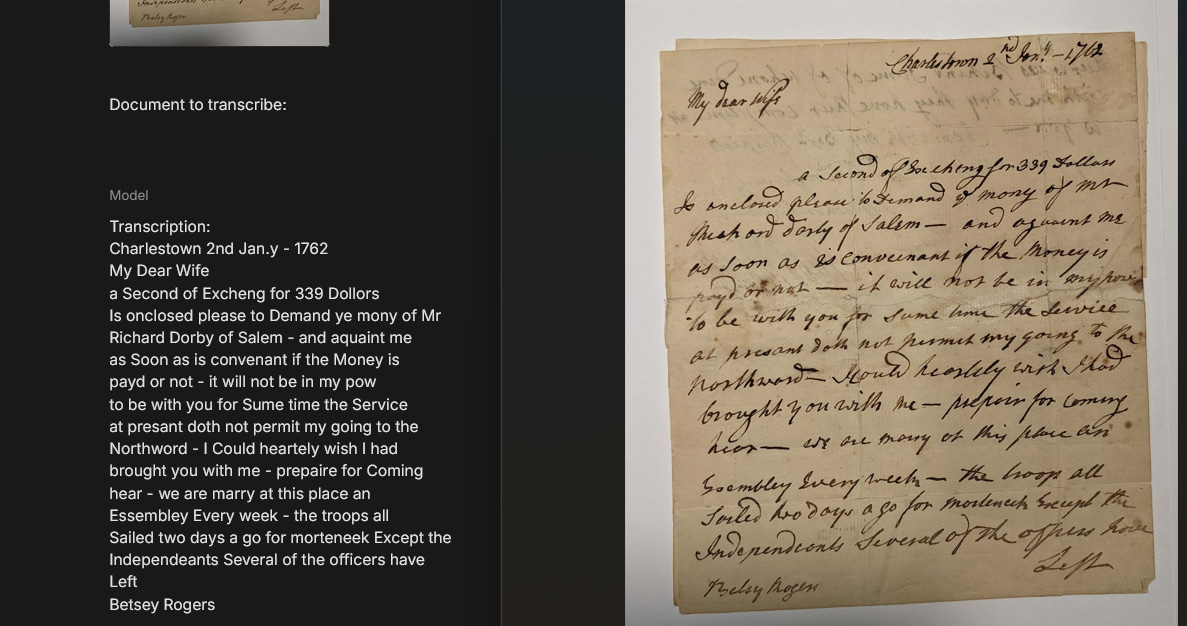 Independeants Several of the officers have
Left
Betsey Rogers
Document to transcribe:
Model
Transcription:
Charlestown 2nd Jan.y - 1762
My Dear Wife
a Second of Excheng for 339 Dollors
Is onclosed please to Demand ye mony of Mr
Richard Dorby of Salem - and aquaint me
as Soon as is convenant if the Money is
payd or not - it will not be in my pow
to be with you for Sume time the Service
at presant doth not permit my going to the
Northword - I Could heartely wish I had
brought you with me - prepaire for Coming
hear - we are marry at this place an
Essembley Every week - the troops all
Sailed two days a go for morteneek Except the
Independeants Several of the officers have
Left
Betsey Rogers
Charlestown 2nd Jan.y - 1762
My dear Wife
a Second of Excheng for 339 Dollars
Is enclosed please to Demand ye mony of Mr
Richard Darby of Salem - and aquaint me
as Soon as is Conveenant if the Money is
payd or not - it will not be in my powr
to be with you for Sume time the Service
at presant doth not permit my going to the
Northword - I Could heartely wish I had
brought you with me - prepair for Coming
hear - we are marry at this place an
Essembley Every week - the troops all
Sailed two days a go for morteneek Except the
Independeants Several of the officers have
Left
Betsey Rogers